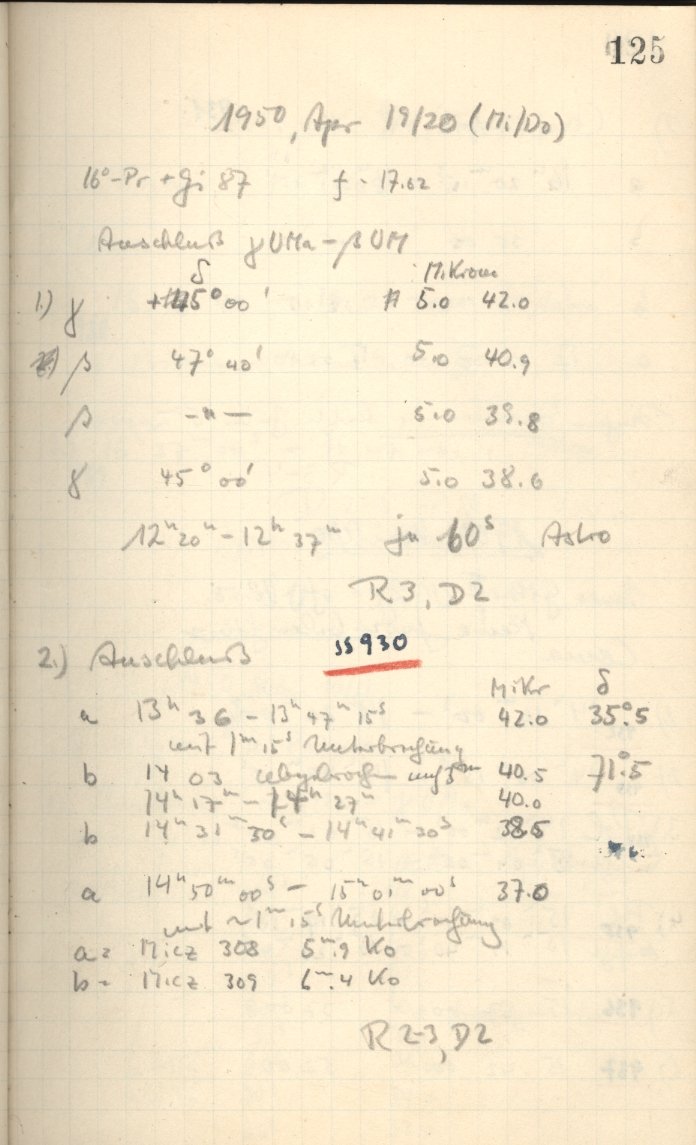 125
1950, Apr 19/20 (Mi/Do)
16°-Pr + Gi 87 f - 17.62
Anschluß γ UMa - β UM
δ Mikrom
1.) γ +45° 00' 5.0 42.0
β 47° 40' 5.0 40.9
β -"- 5.0 39.8
γ 45° 00' 5.0 38.6
12h 20m - 12h 37m je 60s Astro
R3, D2
2.) Anschluß SS 930
Mikr δ
a 13h 36 - 13h 47m 15s 42.0 35°.5
mit 1m 15s Unterbrechung
b 14 03 abgebrochen 40.5 71°.5
14h 17m - 14h 27m 40.0
b 14h 31m 30s - 14h 41m 30s 38.5
a 14h 50m 00s - 15h 01m 00s 37.0
mit ~1m 15s Unterbrechung
a = Micz 308 5m.9 K0
b = Micz 309 6m.4 K0
R2-3, D2